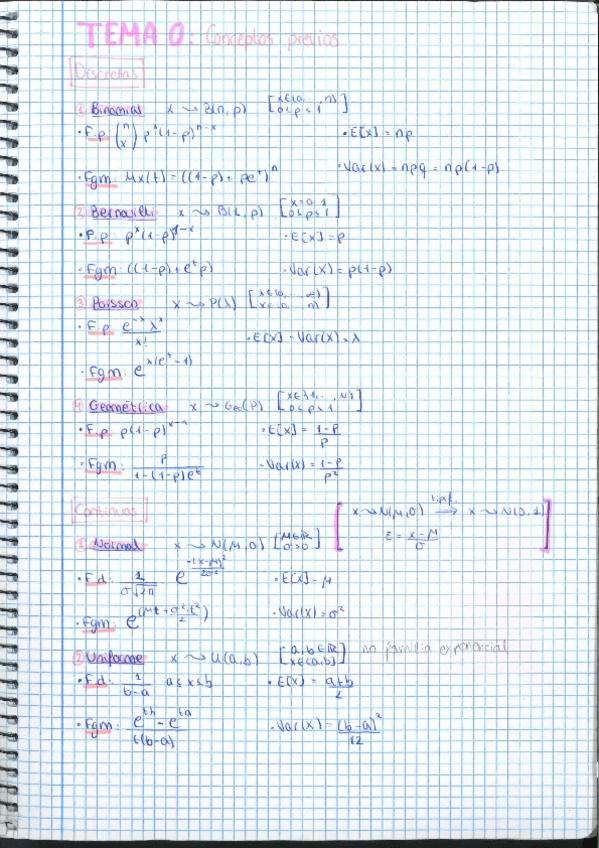 TEMA 0: Conceptos previos
Discretas
① Binomial x ~> B(n,p) [x∈{0,...,n} 0≤p≤1]
• F.p. (n x) p^x (1-p)^(n-x) • E[x] = np
• Fgm: Mx(t) = ((1-p) + pe^t)^n • Var(x) = npq = np(1-p)
② Bernoulli x ~> B(1,p) [x=0,1 0≤p≤1]
• F.p. p^x (1-p)^(1-x) • E[x] = p
• Fgm: ((1-p)+e^t p) • Var(x) = p(1-p)
③ Poisson x ~> P(λ)
• F.p. e^(-λ) λ^x / x! • E[x] = Var(x) = λ
• Fgm: e^(λ(e^t - 1))
④ Geométrica x ~> Geo(p)
• F.p. p(1-p)^(x-1) • E[x] = (1-p)/p
• Fgm: p / (1-(1-p)e^t) • Var(x) = (1-p)/p²
Continuas
[x ~> N(μ,σ) tipif. → x ~> N(0,1)
z = (x-μ)/σ]
① Normal x ~> N(μ,σ) [μ∈ℝ σ>0]
• F.d: 1/(σ√2π) e^(-(x-μ)²/2σ²) • E[x] = μ
• Fgm: e^(μt + σ²t²/2) • Var(x) = σ²
② Uniforme x ~> U(a,b) [a,b∈ℝ x∈(a,b)] no familia exponencial
• F.d: 1/(b-a) a≤x≤b • E(x) = (a+b)/2
• Fgm: (e^(tb) - e^(ta)) / (t(b-a)) • Var(x) = (b-a)²/12